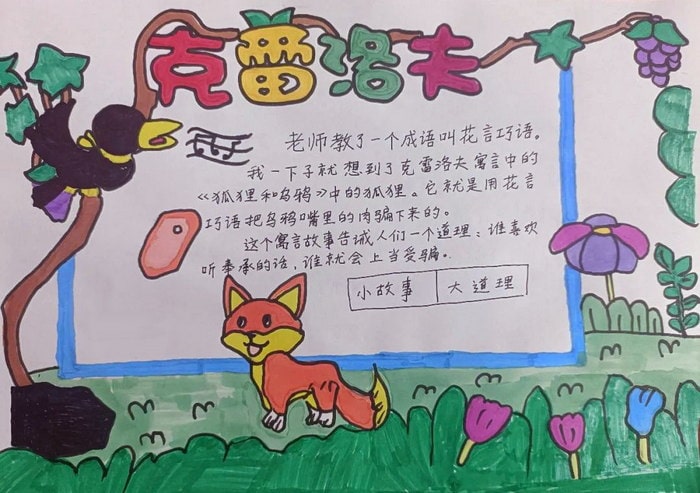 克雷洛夫
老师教了一个成语叫花言巧语。
我一下子就想到了克雷洛夫寓言中的
《狐狸和乌鸦》中的狐狸。它就是用花言
巧语把乌鸦嘴里的肉骗下来的。
这个寓言故事告诫人们一个道理：谁喜欢
听奉承的话，谁就会上当受骗。
小故事 大道理